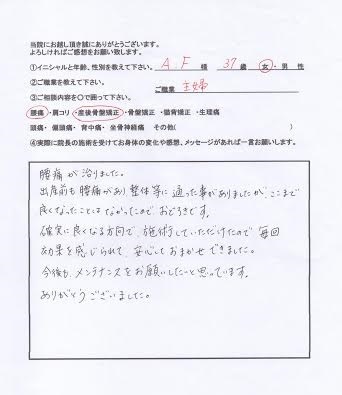 当院にお越し頂き誠にありがとうございます。
よろしければご感想をお願い致します。
①イニシャルと年齢、性別を教えて下さい。 A.F 様 37 歳 女・男 性
②ご職業を教えて下さい。 ご職業 主婦
③ご相談内容を〇で囲って下さい。
腰痛・肩コリ・産後骨盤矯正・骨盤矯正・猫背矯正・生理痛
頭痛・偏頭痛・背中痛・坐骨神経痛 その他( )
④実際に院長の施術を受けてお身体の変化や感想、メッセージがあれば一言お願いします。
腰痛が治りました。
出産前も腰痛があり、整体等に通った事がありましたが、ここまで
良くなったことはなかったので、おどろきです。
確実に良くなる方向で、施術していただけたので毎回
効果を感じられて、安心しておまかせできました。
今後も、メンテナンスをお願いしたいと思っています。
ありがとうございました。